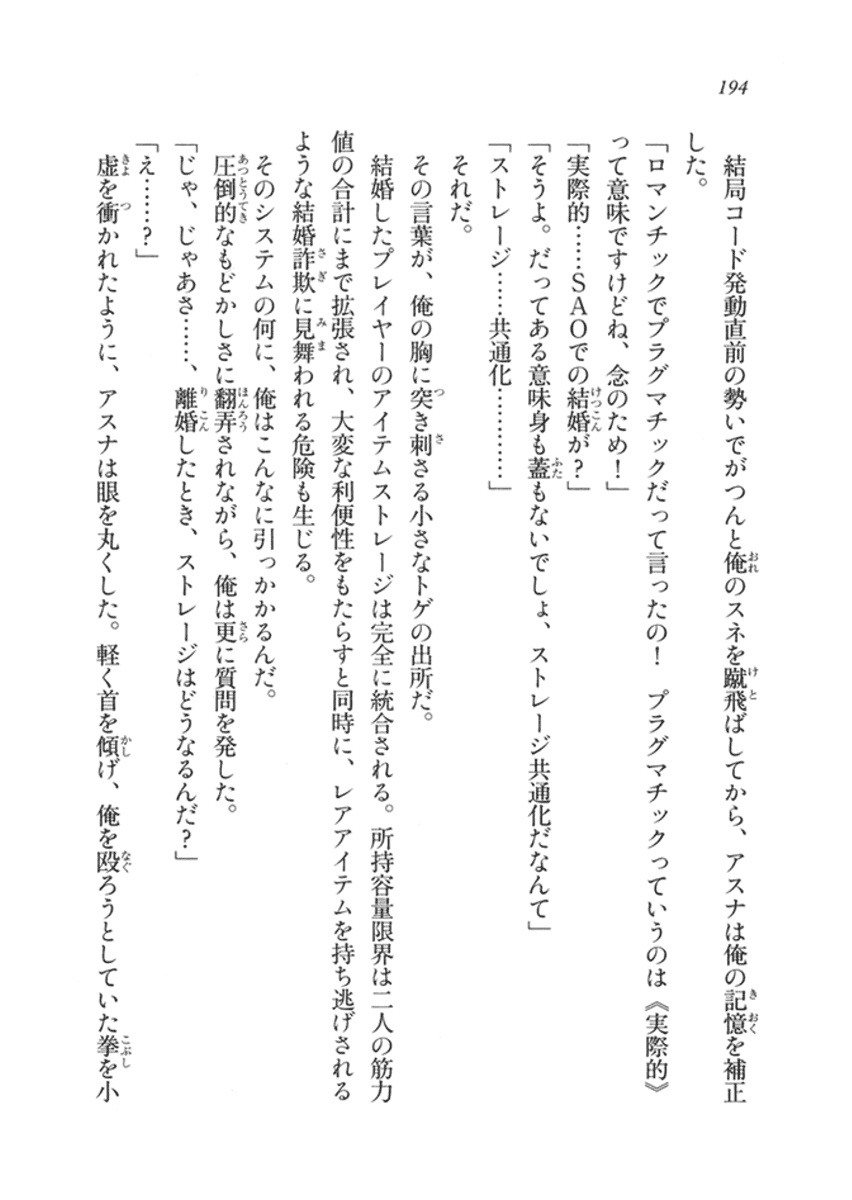 194
結局コード発動直前の勢いでがつんと俺のスネを蹴飛ばしてから、アスナは俺の記憶を補正
した。
「ロマンチックでプラグマチックだって言ったの！　プラグマチックっていうのは《実際的》
って意味ですけどね、念のため！」
「実際的……ＳＡＯでの結婚が？」
「そうよ。だってある意味身も蓋もないでしょ、ストレージ共通化だなんて」
「ストレージ……共通化…………」
それだ。
その言葉が、俺の胸に突き刺さる小さなトゲの出所だ。
結婚したプレイヤーのアイテムストレージは完全に統合される。所持容量限界は二人の筋力
値の合計にまで拡張され、大変な利便性をもたらすと同時に、レアアイテムを持ち逃げされる
ような結婚詐欺に見舞われる危険も生じる。
そのシステムの何に、俺はこんなに引っかかるんだ。
圧倒的なもどかしさに翻弄されながら、俺は更に質問を発した。
「じゃ、じゃあさ……、離婚したとき、ストレージはどうなるんだ？」
「え……？」
虚を衝かれたように、アスナは眼を丸くした。軽く首を傾げ、俺を殴ろうとしていた拳を小